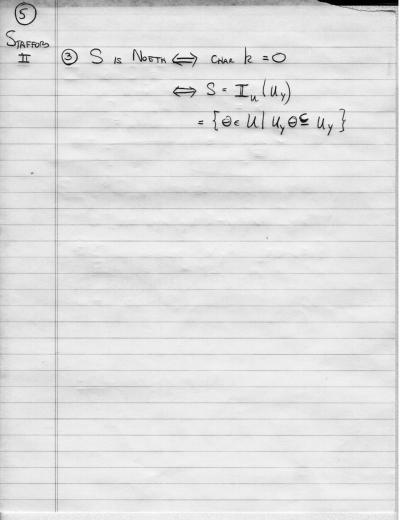 ⑤
STAFFORD
II
③ S IS NOETH ⟺ CHAR k = 0
⟺ S = 𝕀_U(U_y)
= {θ ∈ U | U_y θ ⊆ U_y}